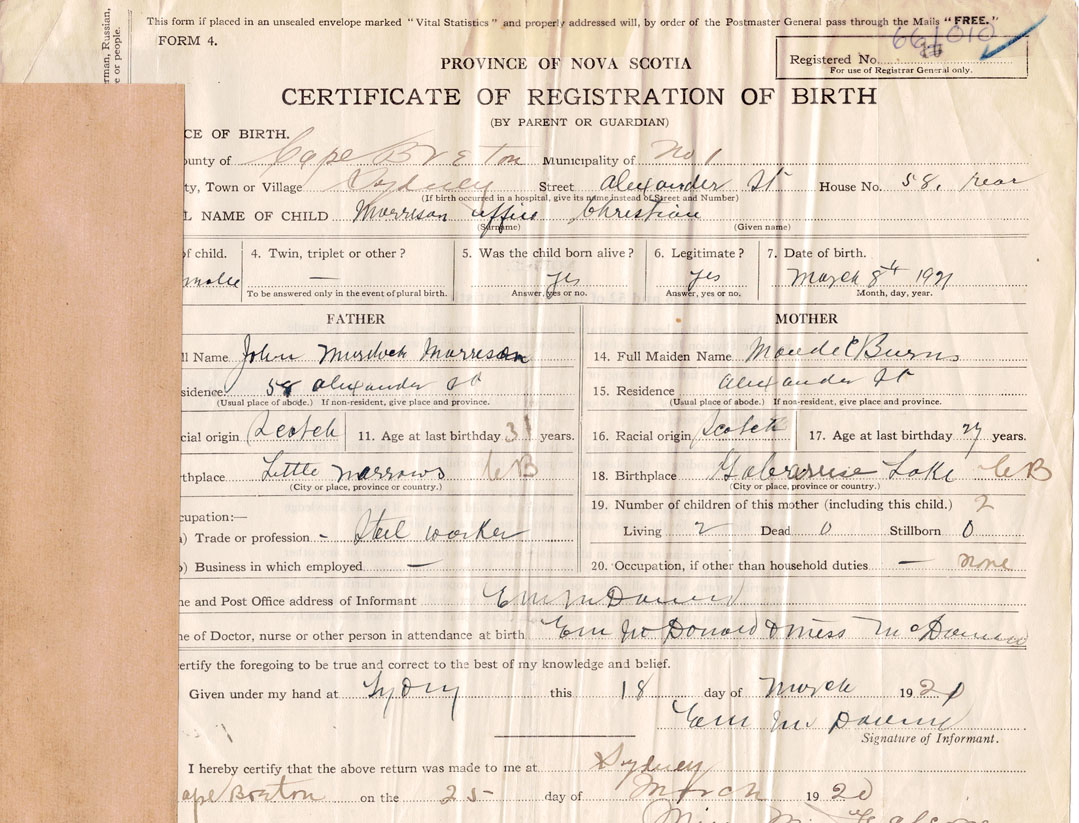 rman, Russian,
e or people.
This form if placed in an unsealed envelope marked "Vital Statistics" and properly addressed will, by order of the Postmaster General pass through the Mails "FREE."
FORM 4.
661010
Registered No.
For use of Registrar General only.
PROVINCE OF NOVA SCOTIA
CERTIFICATE OF REGISTRATION OF BIRTH
(BY PARENT OR GUARDIAN)
CE OF BIRTH.
ounty of Cape Breton Municipality of No 1
ty, Town or Village Sydney Street Alexander St House No. 58, rear
(If birth occurred in a hospital, give its name instead of Street and Number)
L NAME OF CHILD Morrison Christian
(Surname) (Given name)
of child. 4. Twin, triplet or other? 5. Was the child born alive? 6. Legitimate? 7. Date of birth.
male — yes yes March 8th
To be answered only in the event of plural birth. Answer, yes or no. Answer, yes or no. Month, day, year.
FATHER MOTHER
ll Name John Murdock Morrison 14. Full Maiden Name Maude C Burns
sidence 58 Alexander St 15. Residence Alexander St
(Usual place of abode.) If non-resident, give place and province. (Usual place of abode.) If non-resident, give place and province.
cial origin Scotch 11. Age at last birthday 31 years. 16. Racial origin Scotch 17. Age at last birthday 27 years.
thplace Little Narrows CB 18. Birthplace Gabarouse Lake CB
(City or place, province or country.) (City or place, province or country.)
19. Number of children of this mother (including this child.) 2
cupation:—
Living 2 Dead 0 Stillborn 0
) Trade or profession - Steel worker
) Business in which employed — 20. Occupation, if other than household duties — none
ne and Post Office address of Informant
ne of Doctor, nurse or other person in attendance at birth McDonald & Miss
ertify the foregoing to be true and correct to the best of my knowledge and belief.
Given under my hand at Sydny this 18 day of March 19
Signature of Informant.
I hereby certify that the above return was made to me at Sydney
ape Breton on the 25 day of March 1920